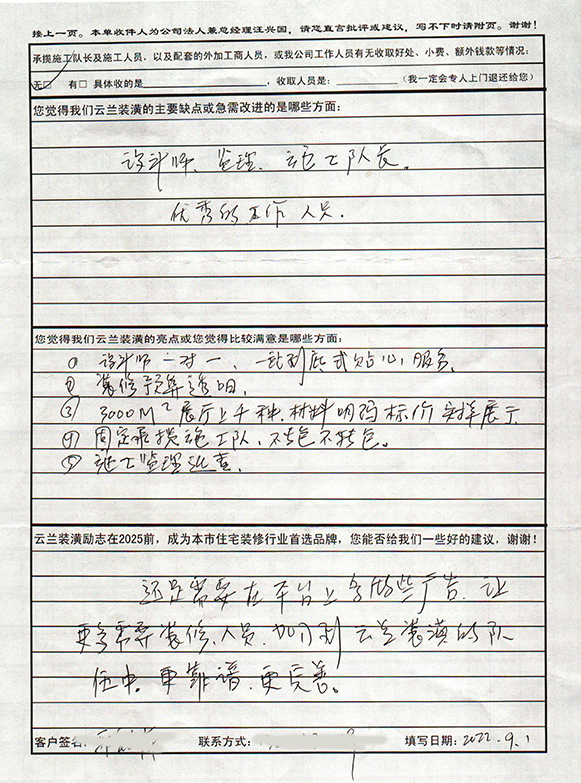 接上一页。本单收件人为公司法人兼总经理汪兴国，请您直言批评或建议，写不下时请附页。谢谢！
承揽施工队长及施工人员，以及配套的外加工商人员，或我公司工作人员有无收取好处、小费、额外钱款等情况：
无□ 有□ 具体收的是 ，收取人员是： （我一定会专人上门退还给您）
您觉得我们云兰装潢的主要缺点或急需改进的是哪些方面：
设计师、监理、施工队长。
优秀的工作人员.
您觉得我们云兰装潢的亮点或您觉得比较满意是哪些方面：
① 设计师一对一、一站到底式贴心服务.
② 装修预算透明.
③ 3000M²展厅上千种.材料明码标价实样展示
④ 固定承揽施工队、不转包不转包。
⑤ 施工监理巡查.
云兰装潢励志在2025前，成为本市住宅装修行业首选品牌，您能否给我们一些好的建议，谢谢！
还是需要在平台上多做些广告.让
更多需要装修.人员.加入到云兰装潢的队
伍中.更靠谱.更完善。
客户签名： 联系方式： 填写日期：2022.9.1